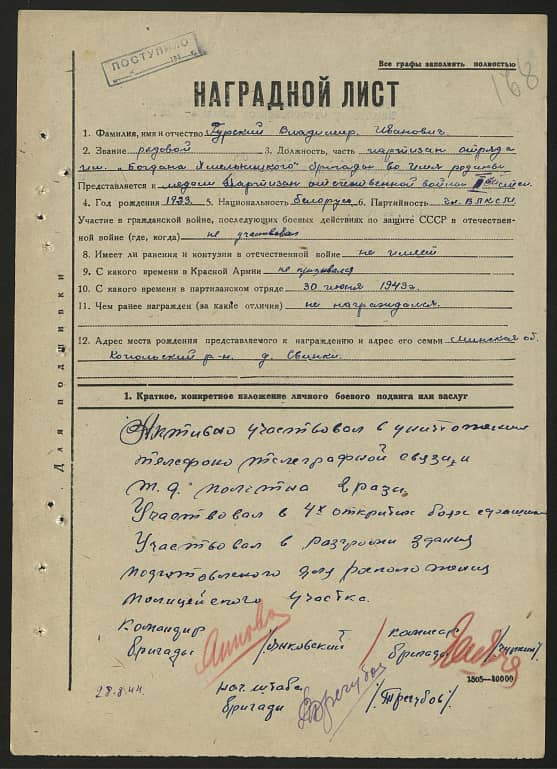 ПОСТУПИЛО
Все графы заполнять полностью
168
НАГРАДНОЙ ЛИСТ
1. Фамилия, имя и отчество Гурский Владимир Иванович
2. Звание рядовой 3. Должность, часть партизан отряда
им. "Богдана Хмельницкого" бригады во Имя родины
Представляется к медали Партизан отечественной войны II степ.
4. Год рождения 1923 5. Национальность белорус 6. Партийность чл. ВЛКСМ
Участие в гражданской войне, последующих боевых действиях по защите СССР в отечествен-
ной войне (где, когда) не участвовал
8. Имеет ли ранения и контузии в отечественной войне не имеет
9. С какого времени в Красной Армии не призывался
10. С какого времени в партизанском отряде 30 июня 1943г.
11. Чем ранее награжден (за какие отличия) не награждался.
12. Адрес места рождения представляемого к награждению и адрес его семьи Минская об.
Копольский р-н. д. Свинки.
Для подшивки
1. Краткое, конкретное изложение личного боевого подвига или заслуг
Активно участвовал в уничтожении
телефоно телеграфной связи и
ж.д. полотна 2 раза,
Участвовал в 4х открытых боях
Участвовал в разгроме здания
подготовленого для расположения
полицейского участка.
Командир
бригады
комисар
бригады
1805—10000
28.8.44
нач. штаба
бригады /Трегубов/